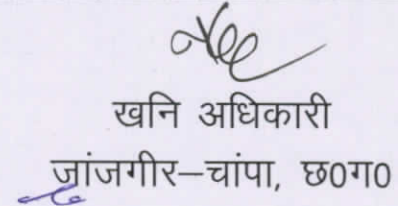 खनि अधिकारी
जांजगीर–चांपा, छ0ग0